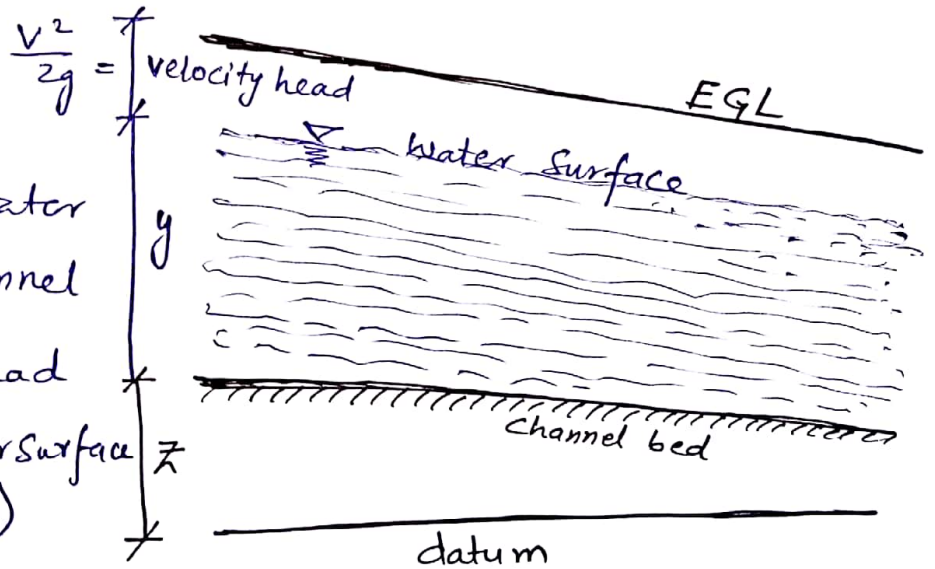 V²/2g = velocity head
EGL
water surface
y
nnel
ad
r surface
z
channel bed
datum